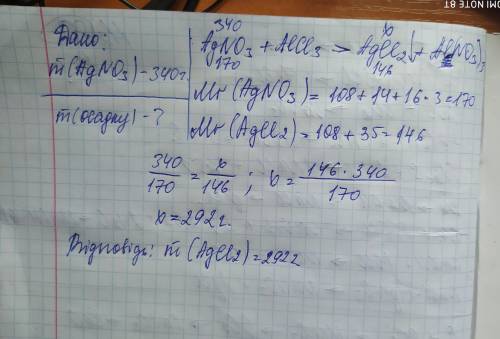 OMI NOTE 8T
Дано:
m(AgNO3) - 340г.
m(осадку) - ?
340 x
AgNO3 + AlCl3 > AgCl2↓ + Al(NO3)3
170 146
Mr (AgNO3) = 108 + 14 + 16 · 3 = 170
Mr (AgCl2) = 108 + 35 = 146
340/170 = x/146 ; x = 146 · 340/170
x = 292 г.
Відповідь: m (AgCl2) = 292г